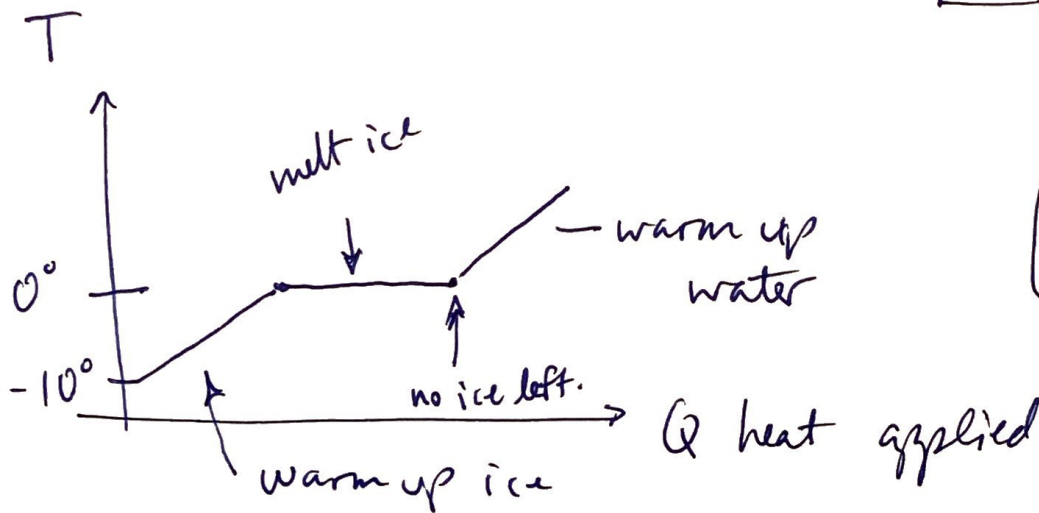 T
melt ice
warm up
water
0°
-10°
no ice left.
Q heat applied
warm up ice